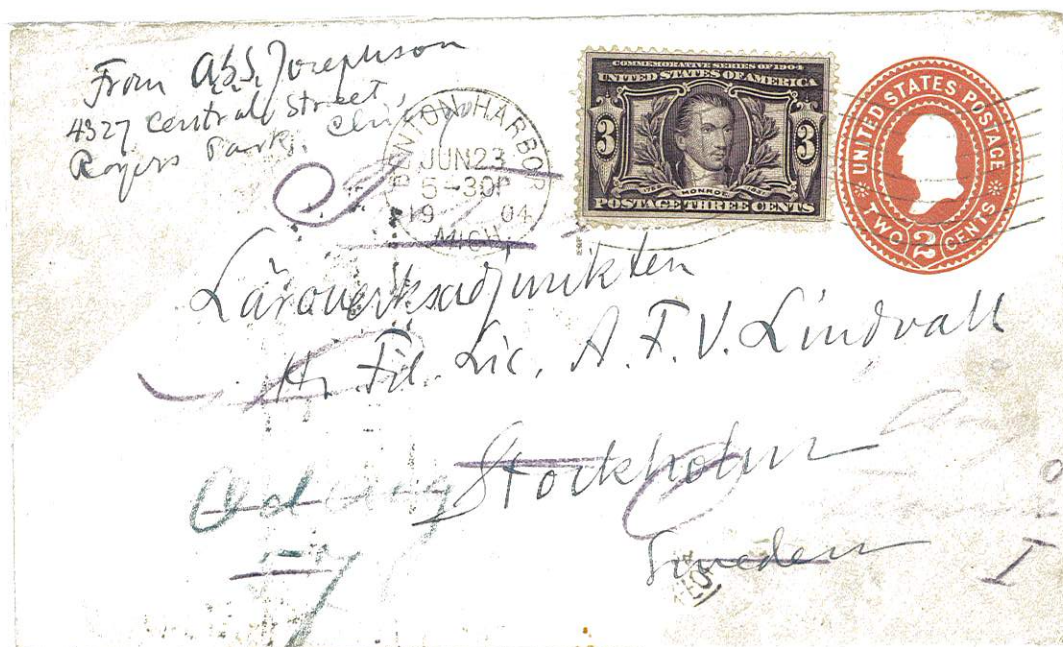 From A.G.S. Josephson
4327 Central Street,
Rogers Park, Chicago
BENTON HARBOR
JUN 23
5-30P
19 04
MICH.
COMMEMORATIVE SERIES OF 1904
UNITED STATES OF AMERICA
3 3
MONROE
POSTAGE THREE CENTS
UNITED STATES POSTAGE
TWO 2 CENTS
Läroverksadjunkten
Hr Fil. Lic. A. F. V. Lindvall
Stockholm
Sweden